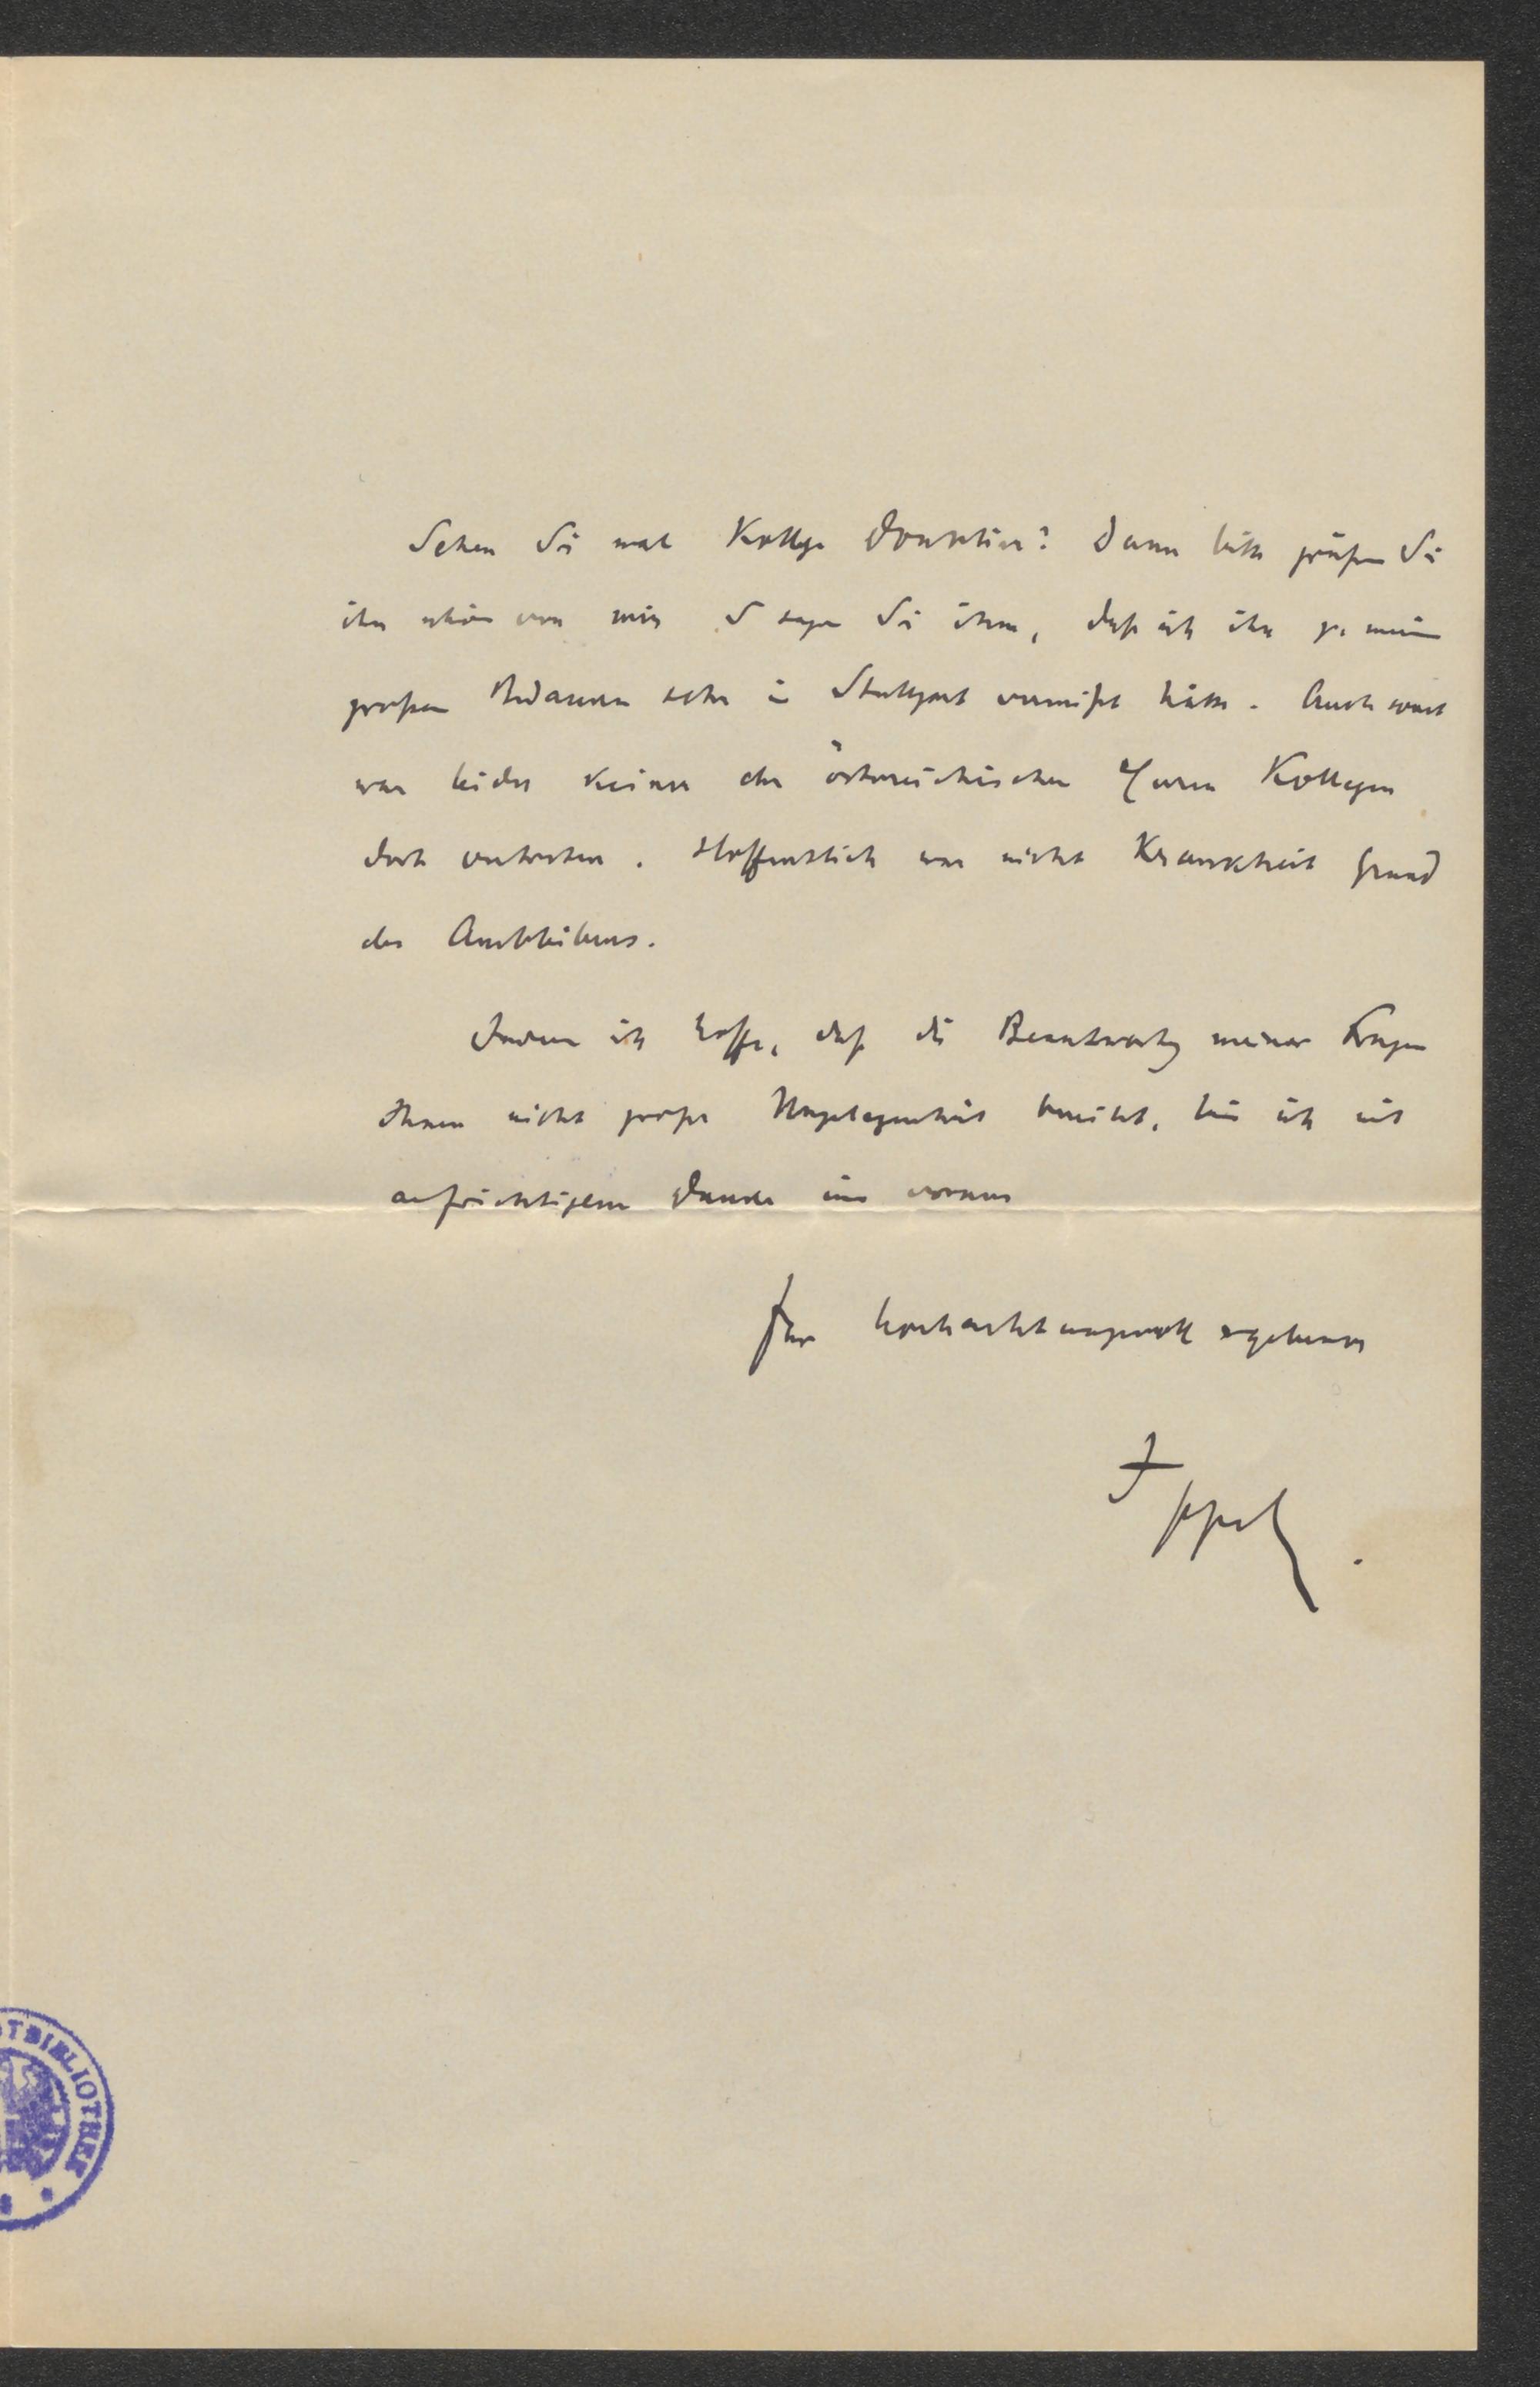 Sehen Sie mal Kollege Doublier? Dann bitte grüßen Sie
ihn schön von mir u sagen Sie ihm, daß ich ihn zu meinem
großen Bedauern sehr in Stuttgart vermißt hätte. Auch sonst
war leider keiner der österreichischen Herren Kollegen
dort vertreten. Hoffentlich war nicht Krankheit Grund
des Ausbleibens.
Indem ich hoffe, daß die Beantwortg meiner Fragen
Ihnen nicht große Ungelegenheit bereitet, bin ich mit
aufrichtigem Danke im voraus
Ihr hochachtungsvoll ergebener
TBIBLIOTHEK